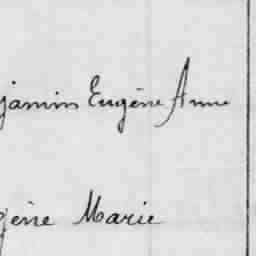 jamin Eugène Anne
gène Marie